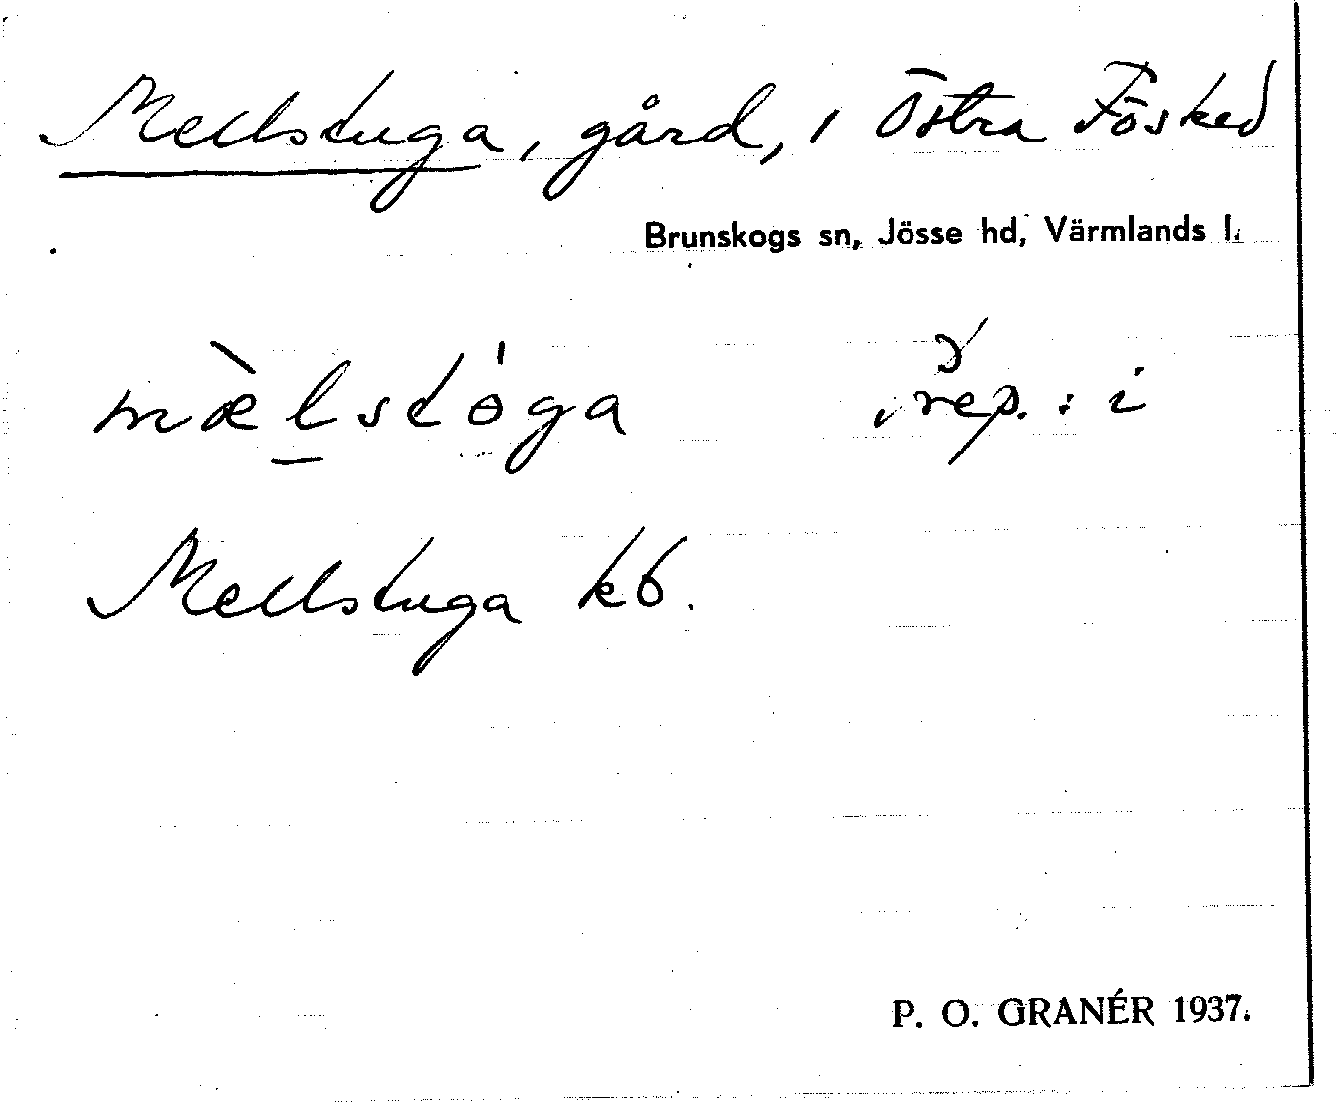 Mellstuga, gård, i Östra Fösked
Brunskogs sn, Jösse hd, Värmlands l.
mæ̀lstɵ́ga prep.: i
Mellstuga kb.
P. O. GRANÉR 1937.